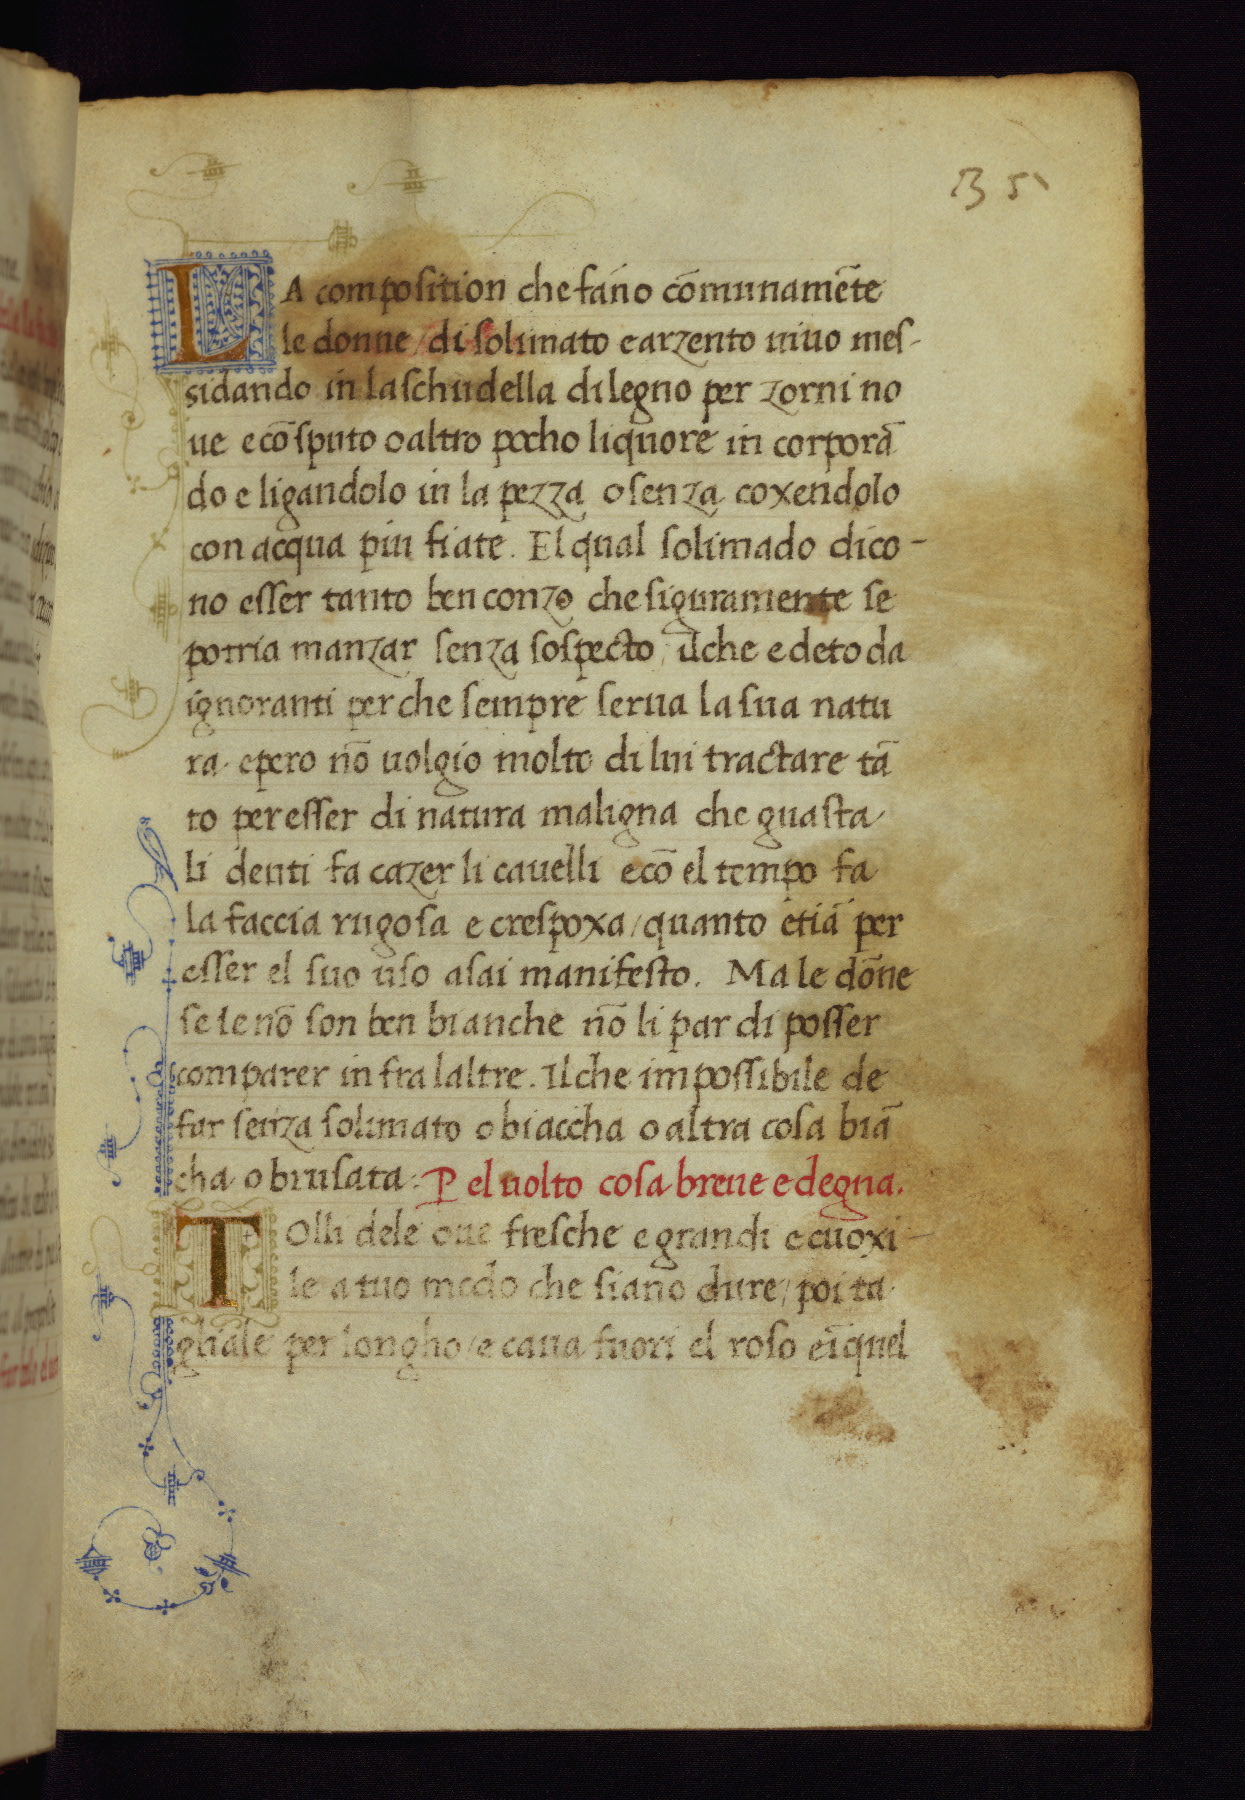 35
LA composition che fan̄o cōmunamēte
le donne / di solimato e arzento uiuo mes-
sidando in la schudella di legno per zorni no
ue e cō sputo o altro pocho liquore in corporā
do e ligandolo in la pezza o senza coxendolo
con acqua piu fiate. El qual solimado dico-
no esser tanto ben conzo che siguramente se
potria manzar senza sospecto / il che e deto da
ignoranti per che sempre serua la sua natu
ra. e pero nō uolgio molto di lui tractare tā
to per esser di natura maligna che guasta
li denti fa cazer li cauelli e cō el tempo fa
la faccia rugosa e crespoxa / quanto etiā per
esser el suo uso asai manifesto. Ma le dōne
se le nō son ben bianche nō li par di posser
comparer in fra laltre. Il che impossibile de
far senza solimato o biaccha o altra cosa biā
cha o brusata: P el uolto cosa breue e degna.
TOlli dele oue fresche e grandi e cuoxi-
le a tuo modo che siano dure / poi ta
gliale per longho / e caua fuori el roso e ī quel